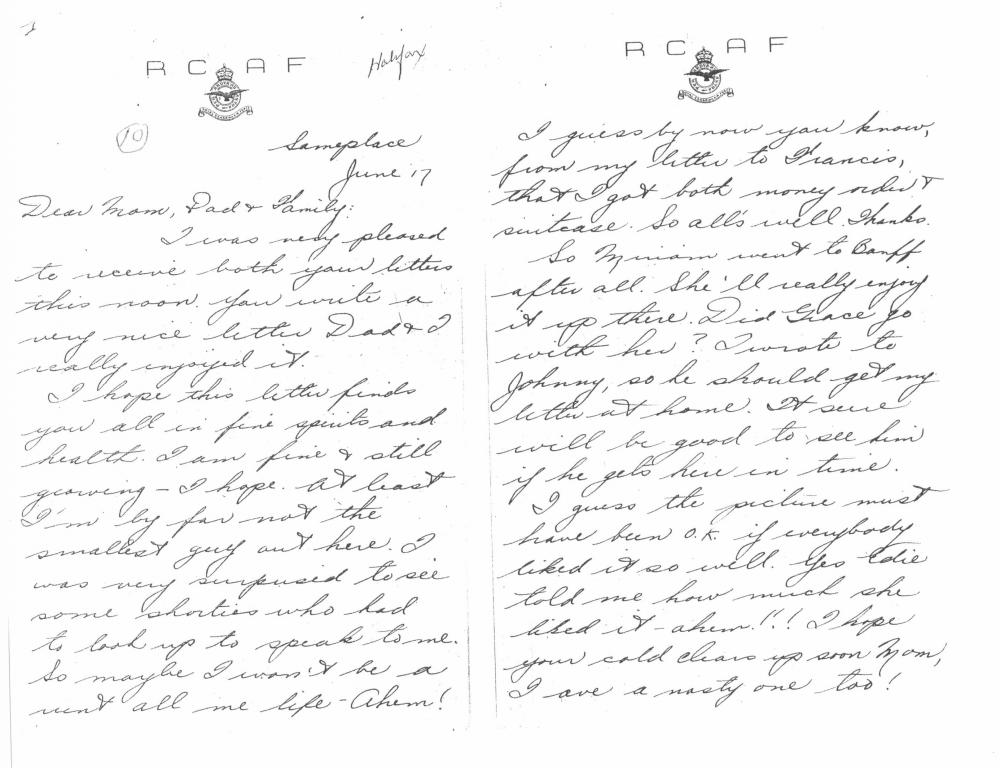 RCAF
Halifax
10
Sameplace
June 17
Dear Mom, Dad & Family:
I was very pleased
to receive both your letters
this noon. You write a
very nice letter Dad & I
really enjoyed it.
I hope this letter finds
you all in fine spirits and
health. I am fine & still
growing - I hope. At least
I'm by far not the
smallest guy out here. I
was very surprised to see
some shorties who had
to look up to speak to me.
So maybe I won't be a
runt all me life - Ahem!
RCAF
I guess by now you know,
from my letter to Francis,
that I got both money order &
suitcase. So all's well. Thanks.
So Miriam went to Banff
after all. She'll really enjoy
it up there. Did Grace go
with her? I wrote to
Johnny, so he should get my
letter at home. It sure
will be good to see him
if he gets here in time.
I guess the picture must
have been O.K. if everybody
liked it so well. Yes Edie
told me how much she
liked it - ahem!!! I hope
your cold clears up soon Mom,
I ave a nasty one too!